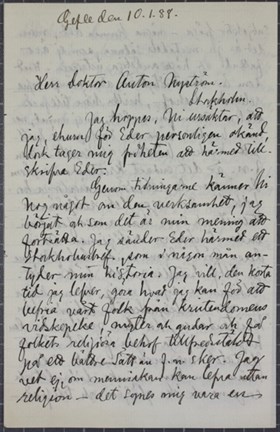 Gefle den 10.1.88.
Herr doktor Anton Nyström.
Stockholm.
Jag hoppas, Ni ursäktar, att
jag, ehuru för Eder personligen okänd
dock tager mig friheten att härmed till-
skrifva Eder.
Genom tidningarne känner Ni
nog något om den verksamhet, jag
börjat och som det är min mening att
fortsätta. Jag sänder Eder härmed ett
som i någon mån an-
tyder min historia. Jag vill, den korta
tid jag lefver, göra hvad jag kan för att
befria vårt folk från kristendomens
vidskepelse, myter och gudar och få
folkets religiösa behof tillfredsstäldt
på ett bättre sätt än f.n. sker. Jag
vet ej, om menniskan kan lefva utan
religion – det synes mig vara en